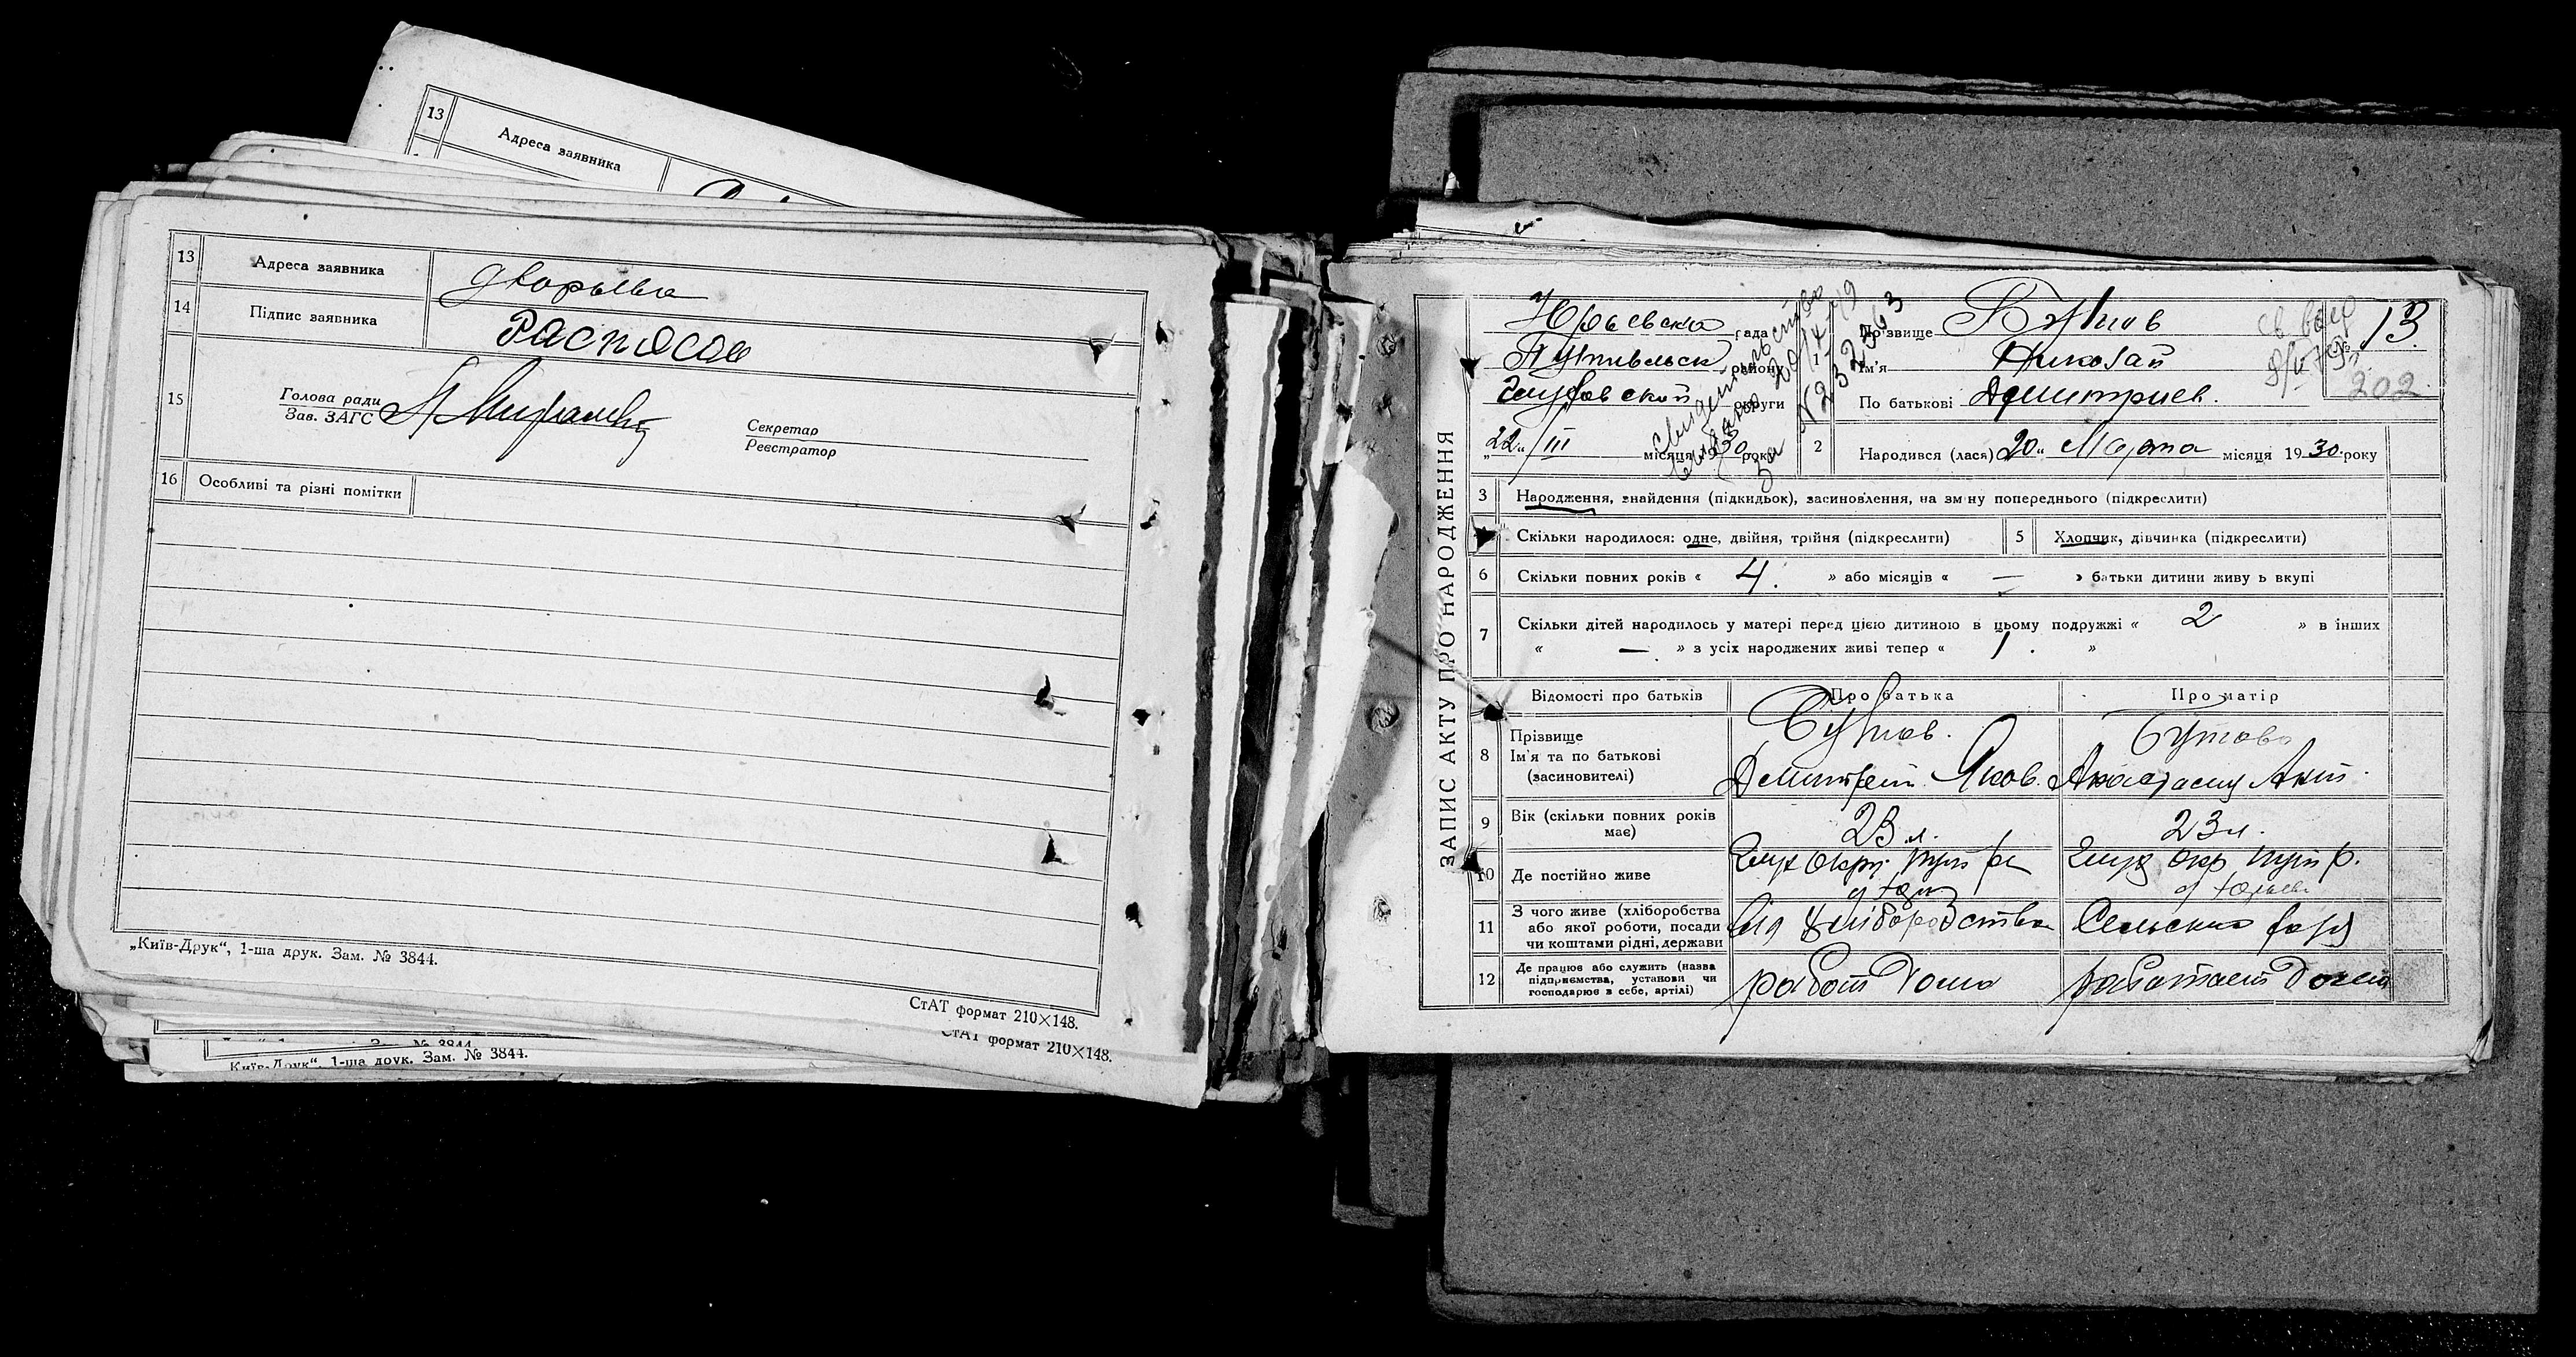 13
Адреса заявника
13 Адреса заявника
14 Підпис заявника
Распасов
15 Голова ради
Зав. ЗАГС
Секретар
Реєстратор
16 Особливі та різні помітки
„Київ-Друк“, 1-ша друк. Зам. № 3844.
СтАТ формат 210×148.
СтАТ формат 210×148.
Київ-Друк“, 1-ша друк. Зам. № 3844.
ЗАПИС АКТУ ПРО НАРОДЖЕННЯ
Юрьевска рада
Путивльск району
округи
„22“/III місяця 1930 року
Свидетельство
20/IX-49
За N 232563
Прізвище Бутов
Ім'я Николай
По батькові Дмитриев.
13.
202
2 Народився (лася) 20„ Марта місяця 1930 року
3 Народження, знайдення (підкидьок), засиновлення, на зміну попереднього (підкреслити)
Скільки народилося: одне, двійня, трійня (підкреслити) 5 Хлопчик, дівчинка (підкреслити)
6 Скільки повних років « 4. » або місяців « — » батьки дитини живу ь вкупі
7 Скільки дітей народилось у матері перед цією дитиною в цьому подружжі « 2 » в інших
« — » з усіх народжених живі тепер « 1. »
Відомості про батьків Про батька Про матір
8 Прізвище Бутов. Бутова
Ім'я та по батькові
(засиновителі) Дмитрей Яков. Анастасия Аким.
9 Вік (скільки повних років має) 23 л. 23 л.
10 Де постійно живе Глух окр. пут р. Глух окр пут р.
11 З чого живе (хліборобства
або якої роботи, посади
чи коштами рідні, держави від хліборобства Сельско
12 Де працює або служить (назва
підприємства, установи чи
господарює в себе, артілі) работ дома работает дома